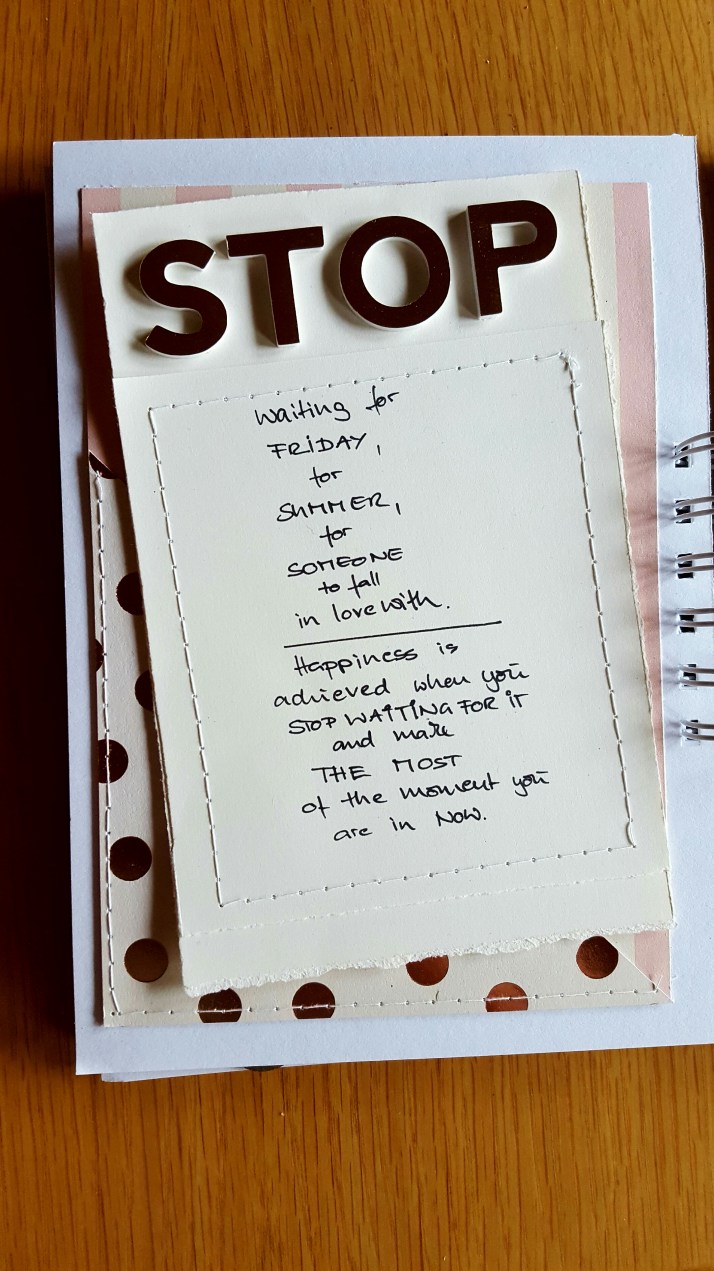 STOP
Waiting for
FRIDAY,
for
SUMMER,
for
SOMEONE
to fall
in love with.
Happiness is
achieved when you
STOP WAITING FOR IT
and make
THE MOST
of the moment you
are in NOW.